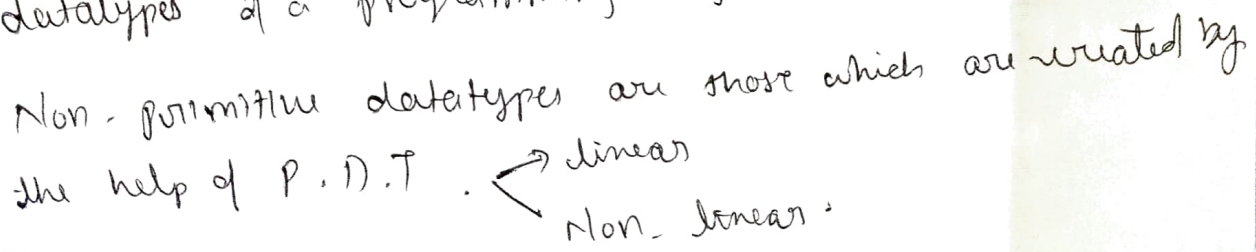 datatypes of a
Non-primitive datatypes are those which are created by
the help of P.D.T. linear
Non-linear.